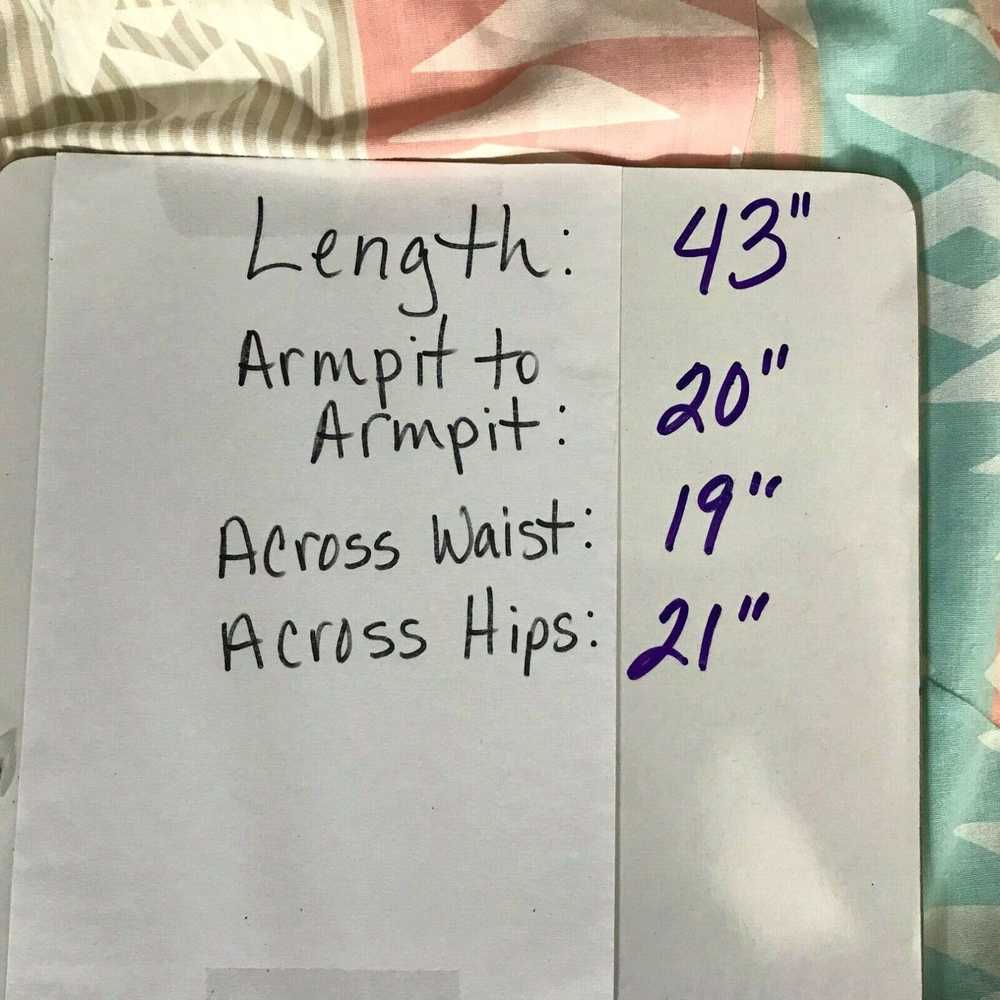 Length: 43"
Armpit to
Armpit: 20"
Across Waist: 19"
Across Hips: 21"